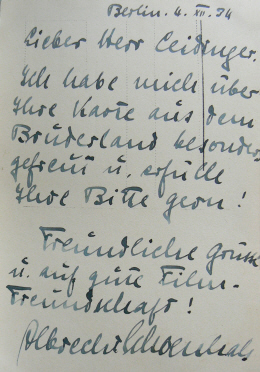 Berlin. 4. XII. 34
Lieber Herr Leidinger.
Ich habe mich über
Ihre Karte aus dem
Bruderland besonders
gefreut u. erfülle
Ihre Bitte gern!
Freundliche Grüsse
u. auf gute Film-
Freundschaft!
Albrecht Schoenhals